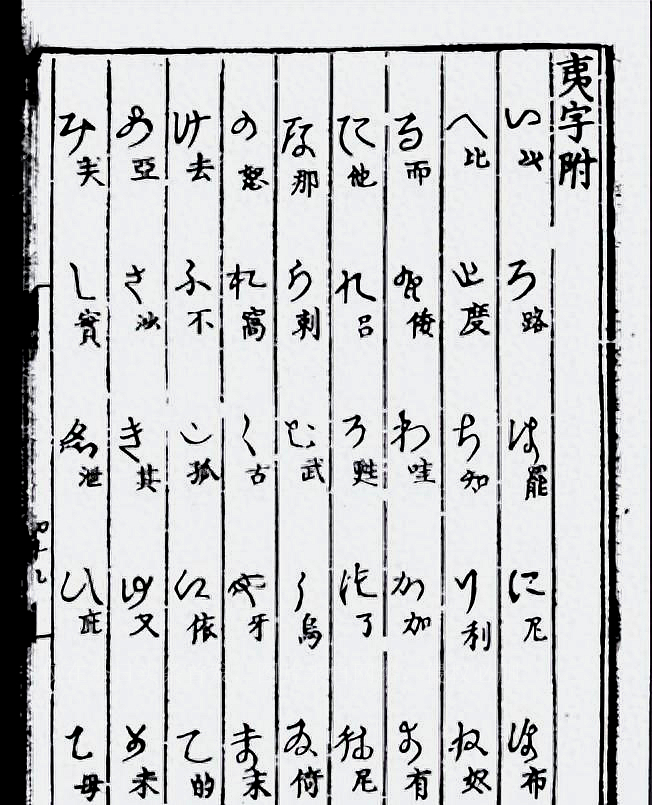 夷字附
い ろ 路 は 罷 に 尼 ほ 布
へ 比 と 度 ち 知 り 利 ぬ 奴
る 而 を 倭 わ 哇 か 加 よ 有
た 他 れ 呂 そ 甦 つ 了 ね 尼
な 那 ら 剌 む 武 う 烏 ゐ 倚
の 怒 お 窩 く 古 や 牙 ま 末
け 去 ふ 不 こ 孤 え 依 て 的
あ 亞 さ 沙 き 其 ゆ 又 め 未
み し 實 ゑ 泄 ひ 庇 も 母